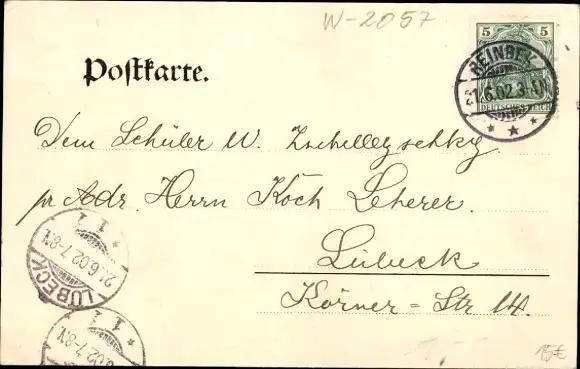 W-2057
5 5
DEUTSCHES REICH
REINBEK
6.02.3-4N
Postkarte.
Dem Schüler W.
pr Adr. Herrn Koch Leherer.
Lübeck
Körner-Str 14.
LÜBECK
21.6.02.7-8V.
* 1
6.02.7-8V
* 1
15€